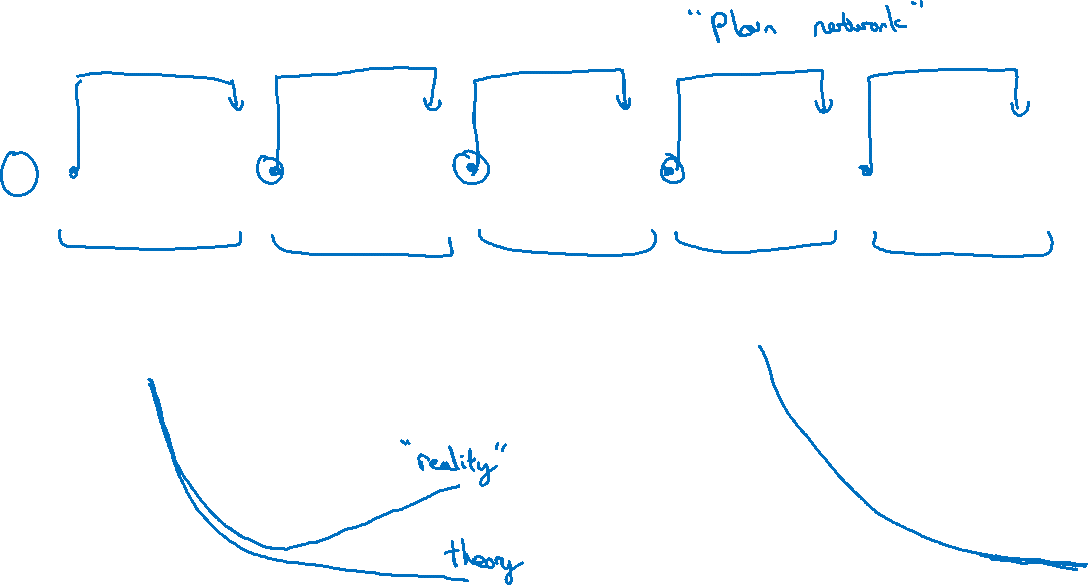 "Plain network"
"reality"
theory